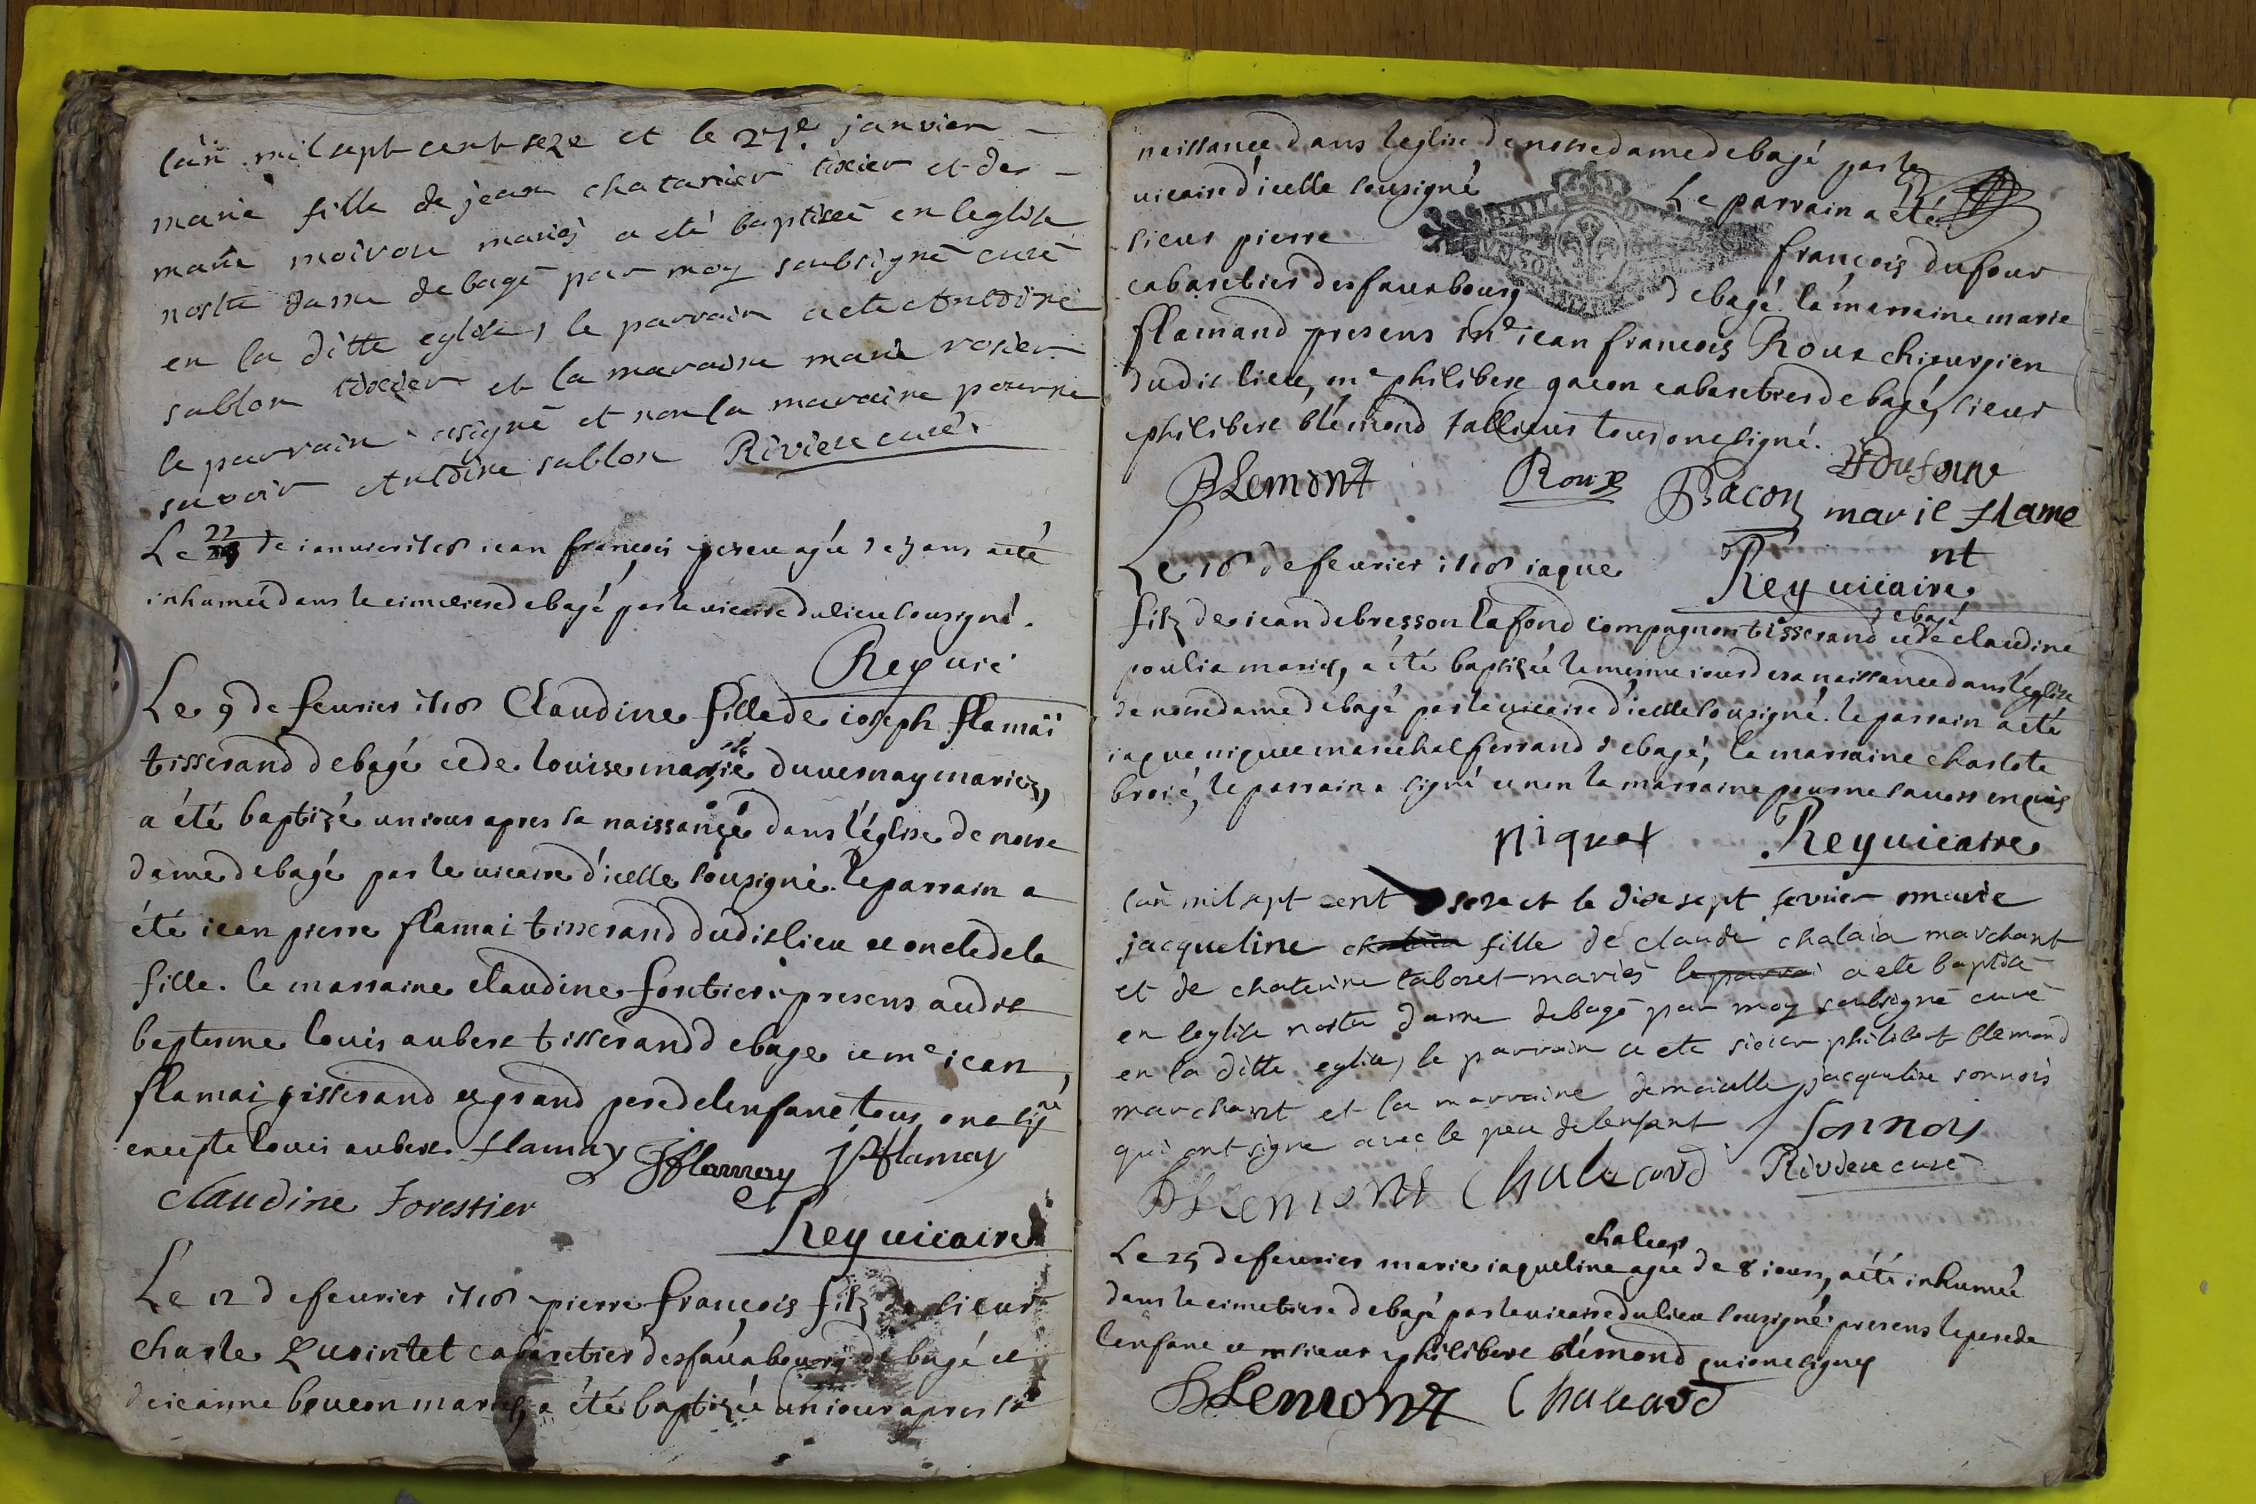 l'an mil sept cent seze et le 27e janvier
marie fille de jean chatanier tixier et de
marie moivou mariés a eté baptisée en leglise
nostre dame de bagé par moy soubsigné curé
en la ditte eglise, le parrain a eté Antoine
sablon tixier et la maraine marie rosier
le parrain a signé et non la maraine pour ne
savoir Antoine sablon Riviere curé
Le 22 de ianvier 1716 iean françois agée de 3 ans a eté
inhumée dans le cimetiere de bagé par le vicaire du lieu sousigné.
Rey vicē
Le 9 de fevrier 1716 Claudine fille de ioseph flamai
tisserand de bagé et de louise marie duvernay mariez,
a été baptizé un iour apres sa naissance dans l'église de notre
dame de bagé par le vicaire d'icelle sousigné. le parrain a
été iean pierre flamai tisserand dudit lieu et oncle de la
fille. la marraine claudine fortier. presens audit
baptesme louis aubert tisserand de bagé et me iean
flamai tisserand et grand pere de lenfant tous ont signé
excepté louis aubert. flamay jflamay jPflamay
claudine Forestier
Rey vicaire
Le 12 de fevrier 1716 pierre françois filz de sieur
charle Quointet cabaretier des fauxbourg de bagé et
de ieanne boucon mariés, a été baptizée un iour apres sa
naissance dans leglise de notre dame de bagé par le
vicaire d'icelle sousigné Le parrain a été
sieur pierre françois dufour
cabaretier des fauxbourg de bagé la marraine marie
flamand presens md iean françois Roux chirurgien
dudit lieu, me philibert gacon cabaretier de bagé, sieur
philibert blémond tous ont signé.
BLemont Roux Bacon dufour
marie flame
nt
Le 16 de fevrier 1716 iaque Rey vicaire
filz de iean debresson lafond compagnon tisserand de bagé et de claudine
poulia mariés, a été baptizée le mesme iour de sa naissance dans l'église
de notre dame de bagé par le vicaire d'icelle sousigné. le parrain a eté
iaque niquet marechal ferrand de bagé, la marraine charlote
broié, le parrain a signé et non la marraine pour ne savoir enquis
niquet Rey vicaire
l'an mil sept cent seze et le dixe sept fevrier marie
jacqueline fille de claude chalaia marchant
et de chaterine taboret mariés le parrai a ete baptisé
en leglise nostre dame de bagé par moy soubsigné curé
en la ditte eglise, le parrain a ete sieur philibert blemond
marchant et la marraine demoiselle jacqueline sonnois
qui ont signé avec le pere de lenfant Sonnois
BLemont Chaleard Riviere curé
chaleard
Le 25 de fevrier marie iaqueline agée de 8 iours, a été inhumée
dans le cimetiere de bagé par le vicaire du lieu sousigné. presens le pere de
lenfant et sieur philibert blémond qui ont signés
BLemont Chaleard